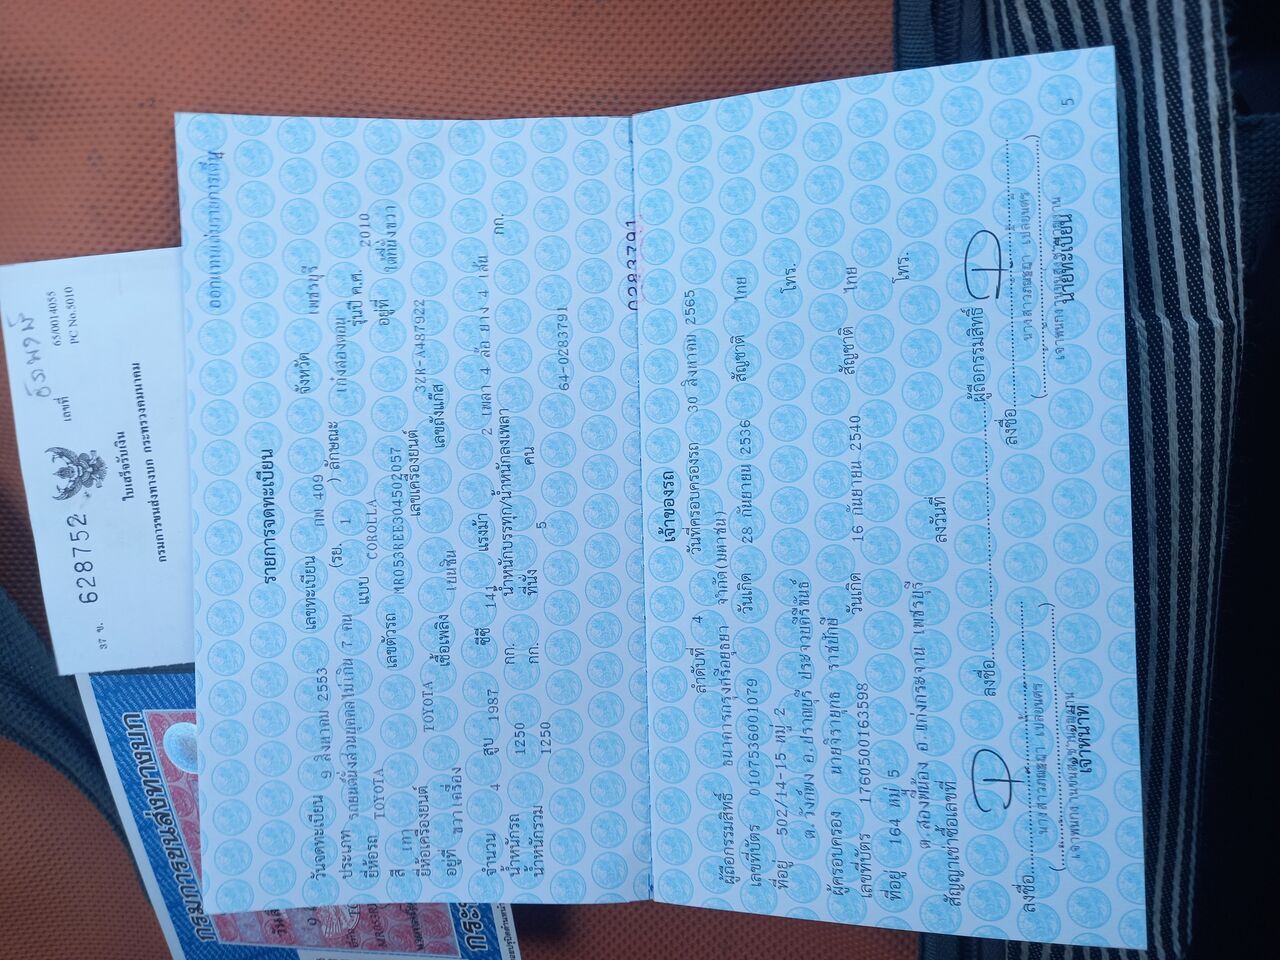 37 ข.
628752
เลขที่
65/0014055
PC No.S010
ใบเสร็จรับเงิน
กรมการขนส่งทางบก กระทรวงคมนาคม
กรมการขนส่งทางบก
รายการจดทะเบียน
วันจดทะเบียน 9 สิงหาคม 2553 เลขทะเบียน กพ 409 จังหวัด เพชรบุรี
ประเภท รถยนต์นั่งส่วนบุคคลไม่เกิน 7 คน (รย. 1 ) ลักษณะ เก๋งสองตอน
ยี่ห้อรถ TOYOTA แบบ COROLLA รุ่นปี ค.ศ. 2010
สี เทา เลขตัวรถ MR053REE304502057 อยู่ที่ ใต้ที่นั่งขวา
ยี่ห้อเครื่องยนต์ TOYOTA เลขเครื่องยนต์ 3ZR-A487922
อยู่ที่ ขวาเครื่อง เชื้อเพลิง เบนซิน เลขถังแก๊ส
จำนวน 4 สูบ 1987 ซีซี 141 แรงม้า 2 เพลา 4 ล้อ ยาง 4 เส้น
น้ำหนักรถ 1250 กก. น้ำหนักบรรทุก/น้ำหนักลงเพลา กก.
น้ำหนักรวม 1250 กก. ที่นั่ง 5 คน
64-0283791
0283791
เจ้าของรถ
ลำดับที่ 4 วันที่ครอบครองรถ 30 สิงหาคม 2565
ผู้ถือกรรมสิทธิ์ ธนาคารกรุงศรีอยุธยา จำกัด(มหาชน)
เลขที่บัตร 0107536001079 วันเกิด 28 กันยายน 2536 สัญชาติ ไทย
ที่อยู่ 502/14-15 หมู่ 2 โทร.
ต.วังก์พง อ.ปราณบุรี ประจวบคีรีขันธ์
ผู้ครอบครอง นายวิรายุทธ ราชปักษี
เลขที่บัตร 1760500163598 วันเกิด 16 กันยายน 2540 สัญชาติ ไทย
ที่อยู่ 164 หมู่ 5 โทร.
ต.สองพี่น้อง อ.แก่งกระจาน เพชรบุรี
สัญญาเช่าซื้อเลขที่ ลงวันที่
ลงชื่อ ผู้ถือกรรมสิทธิ์
ลงชื่อ ลงชื่อ
เจ้าหน้าที่ นายทะเบียน
5